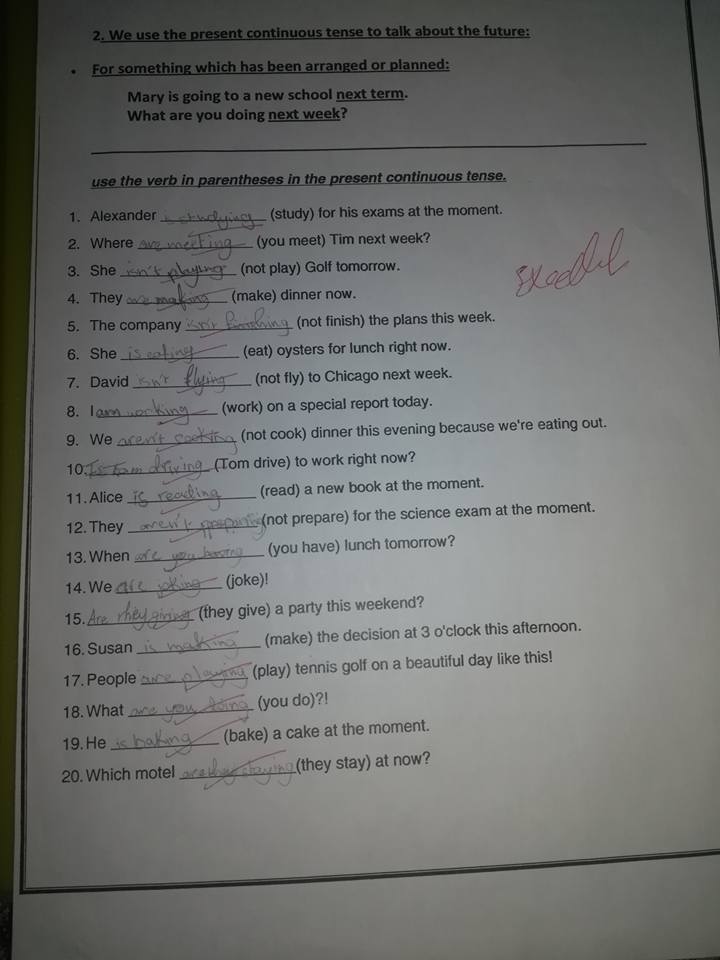 2. We use the present continuous tense to talk about the future:
• For something which has been arranged or planned:
Mary is going to a new school next term.
What are you doing next week?
use the verb in parentheses in the present continuous tense.
1. Alexander is studying (study) for his exams at the moment.
2. Where are meeting (you meet) Tim next week?
3. She isn't playing (not play) Golf tomorrow.
4. They are making (make) dinner now.
5. The company isn't finishing (not finish) the plans this week.
6. She is eating (eat) oysters for lunch right now.
7. David isn't flying (not fly) to Chicago next week.
8. I am working (work) on a special report today.
9. We aren't cooking (not cook) dinner this evening because we're eating out.
10. Is tom driving (Tom drive) to work right now?
11. Alice is reading (read) a new book at the moment.
12. They aren't preparing (not prepare) for the science exam at the moment.
13. When are you having (you have) lunch tomorrow?
14. We are joking (joke)!
15. Are they giving (they give) a party this weekend?
16. Susan is making (make) the decision at 3 o'clock this afternoon.
17. People are playing (play) tennis golf on a beautiful day like this!
18. What are you doing (you do)?!
19. He is baking (bake) a cake at the moment.
20. Which motel are they staying (they stay) at now?